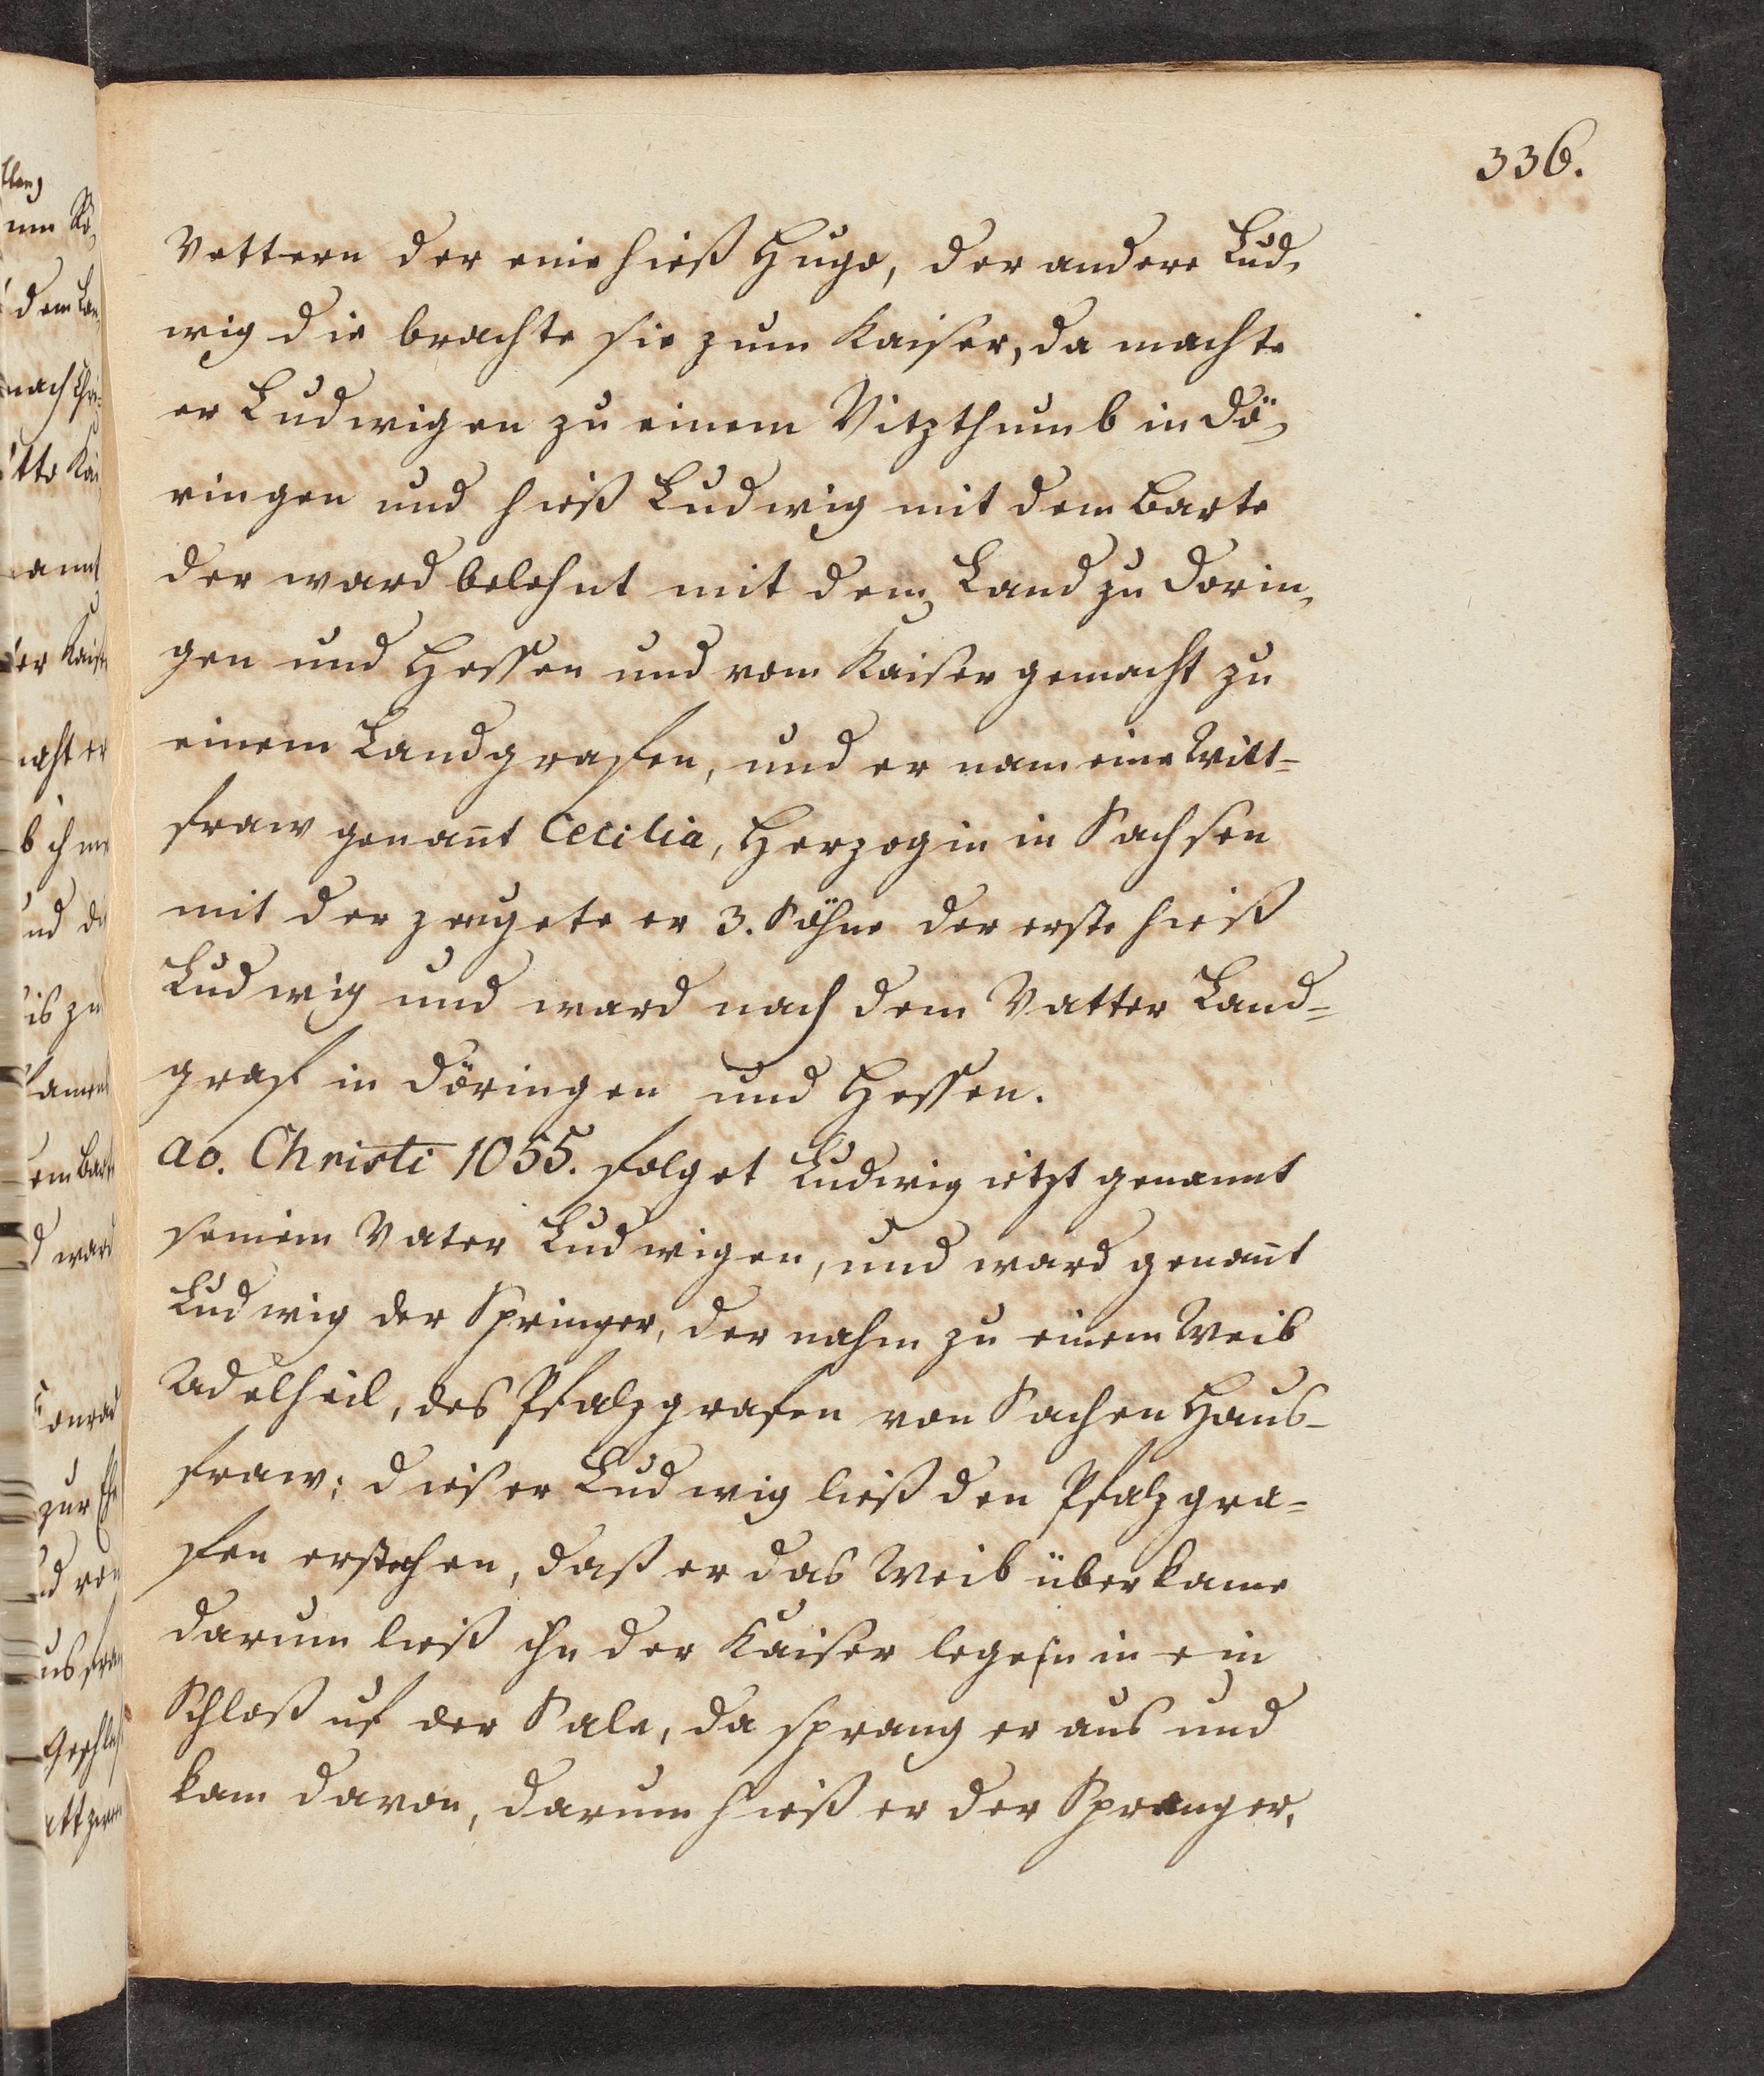 336.
Vettern der eine hieß Hugo, der andere Lud„
wig die brachte sie zum Kaiser, da machte
er Ludwigen zu einem Vitzthumb in Dö„
ringen und hieß Ludwig mit dem Barte
der ward belehnt mit dem Land zu Dorin„
gen und Hessen und vom Kaiser gemacht zu
einem Landgrafen, und er nam eine Witt=
fraw genan̄t Cecilia, Herzogin in Sachsen
mit der zeugete er 3. Söhne der erste hieß
Ludwig und ward nach dem Vatter Land=
graf in Döringen und Hessen.
ao. Christi 1055. folget Ludwig ietzt genannt
seinem Vater Ludwigen, und ward genan̄t
Ludwig der Springer, der nahm zu einem Weib
Adelheil, des Pfalzgrafen von Sachen Haus=
fraw; dieser Ludwig ließ den Pfalzgra=
fen erstechen, daß er das Weib überkame
darum ließ ihn der Kaiser legen in ein
Schloß uf der Sale, da sprang er aus und
kam davon, darum hieß er der Spranger,